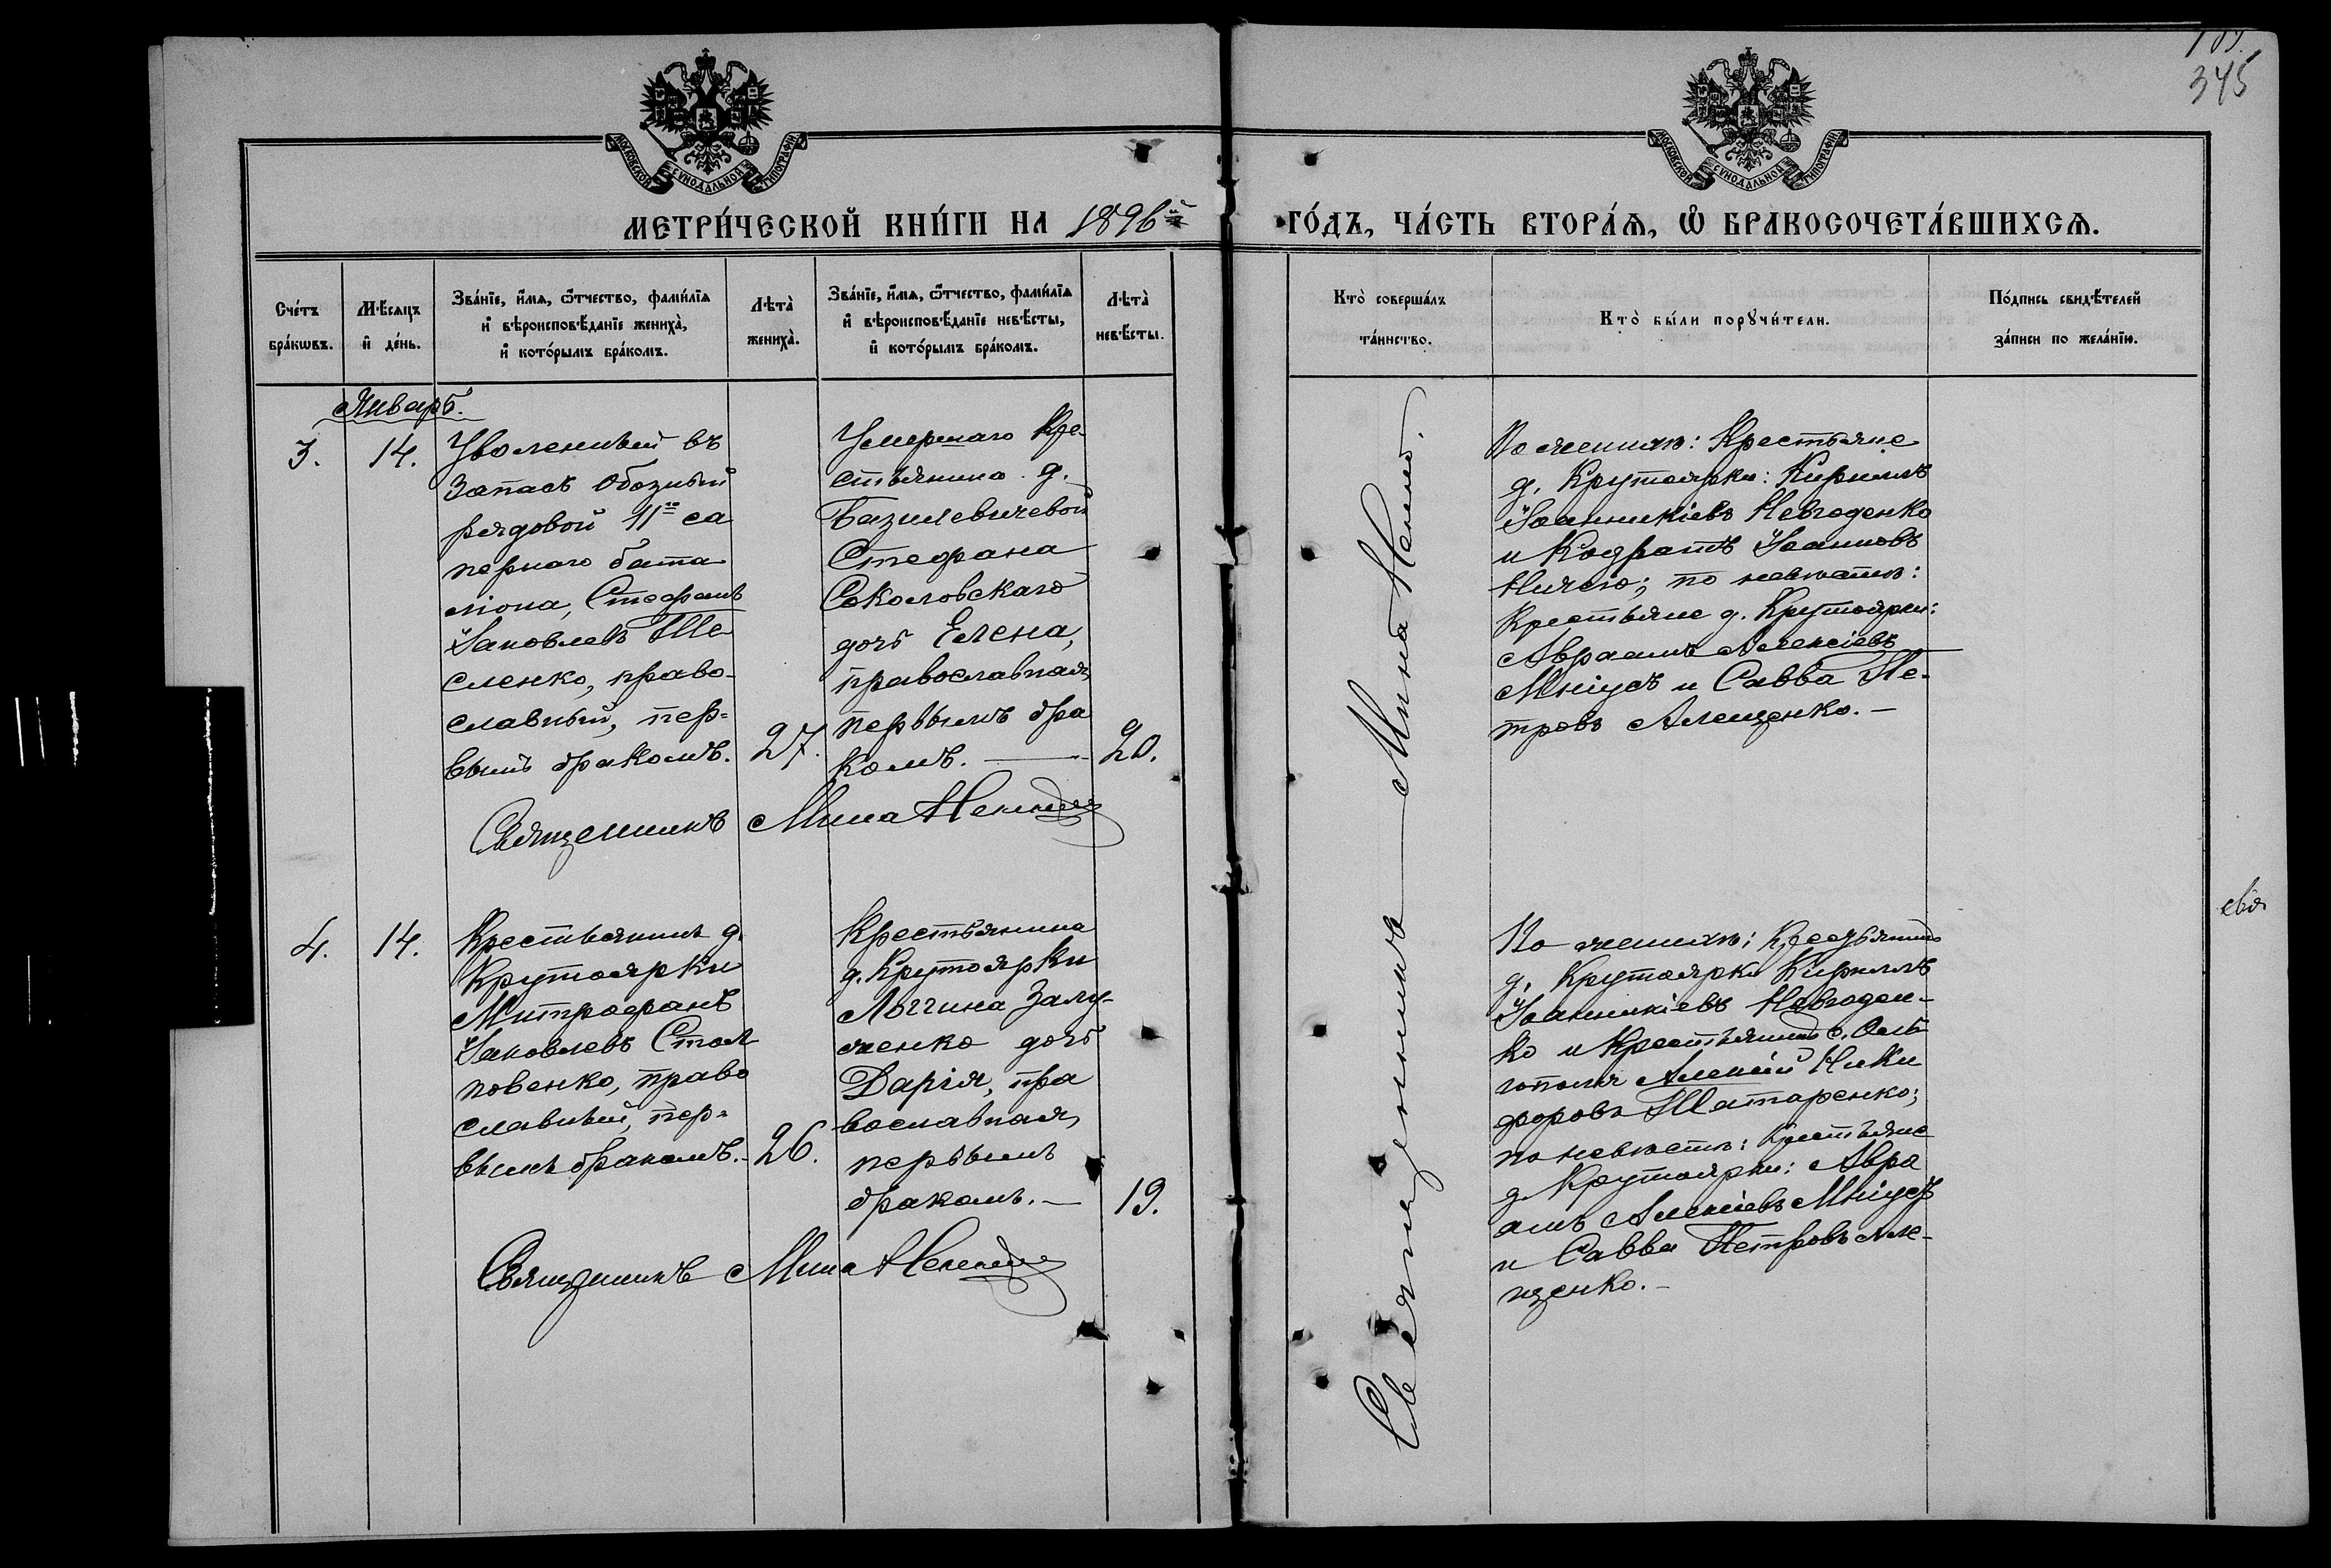 345
МОСКОВСКОЙ СУНОДАЛЬНОЙ ТИПОГРАФІИ
МОСКОВСКОЙ СУНОДАЛЬНОЙ ТИПОГРАФІИ
МЕТРИ́ЧЕСКОЙ КНИ́ГИ НА 1896й ГО́ДЪ, ЧА́СТЬ ВТОРА́Ѧ, Ѡ҆ БРАКОСОЧЕТА́ВШИХСѦ.
Сче́тъ бра́кѡвъ.
Мѣ́сѧцъ и҆ де́нь.
Зва́нїе, и҆́мѧ, ѻ҆́тчество, фами́лїѧ и҆ вѣроисповѣ́данїе жениха̀, и҆ кото́рымъ бра́комъ.
Лѣта̀ жениха̀.
Зва́нїе, и҆́мѧ, ѻ҆́тчество, фами́лїѧ и҆ вѣроисповѣ́данїе невѣ́сты, и҆ кото́рымъ бра́комъ.
Лѣта̀ невѣ́сты.
Кто̀ соверша́лъ та́инство.
Кто̀ бы́ли порꙋчи́тели.
По́дпись свидѣ́телей за́писи по жела́нїю.
Январь.
3.
14.
Уволенный въ
запасъ обозный
рядовой 11го са
пернаго бата
ліона, Стефанъ
Іаковлевъ Те
сленко, право-
славный, пер=
вымъ бракомъ.
27.
Умершаго кре-
стьянина д.
Базилевичевой
Стефана
Соколовскаго
дочь Елена,
православная,
первымъ бра
комъ.
20.
Священникъ Мина
По женихѣ: Крестьяне
д. Крутоярки: Кириллъ
Іоанникіевъ Невгоденко
и Кодратъ Іоанновъ
по невѣстѣ:
Крестьяне д. Крутоярки:
Авраамъ Алексіевъ
Мніусъ и Савва Пе-
тровъ Алещенко. -
Священникъ Мина
4.
14.
Крестьянинъ д.
Крутоярки
Митрофанъ
Іаковлевъ Стол
повенко, право
славный, пер=
вымъ бракомъ.-
26.
Крестьянина
д. Крутоярки
Логгина Залу-
женко дочь
Дарія, пра
вославная,
первымъ
бракомъ. -
19.
Священникъ Мина
По женихѣ: Крестьянинъ
д. Крутоярки Кириллъ
Іоанникіевъ Невгоден-
ко и Крестьянинъ с. Оль
гополя Алексій Ники
форовъ Татаренко;
по невѣстѣ: Крестьяне
д. Крутоярки: Авра
амъ Алексіевъ Мніусъ
и Савва Петровъ Але-
щенко. -